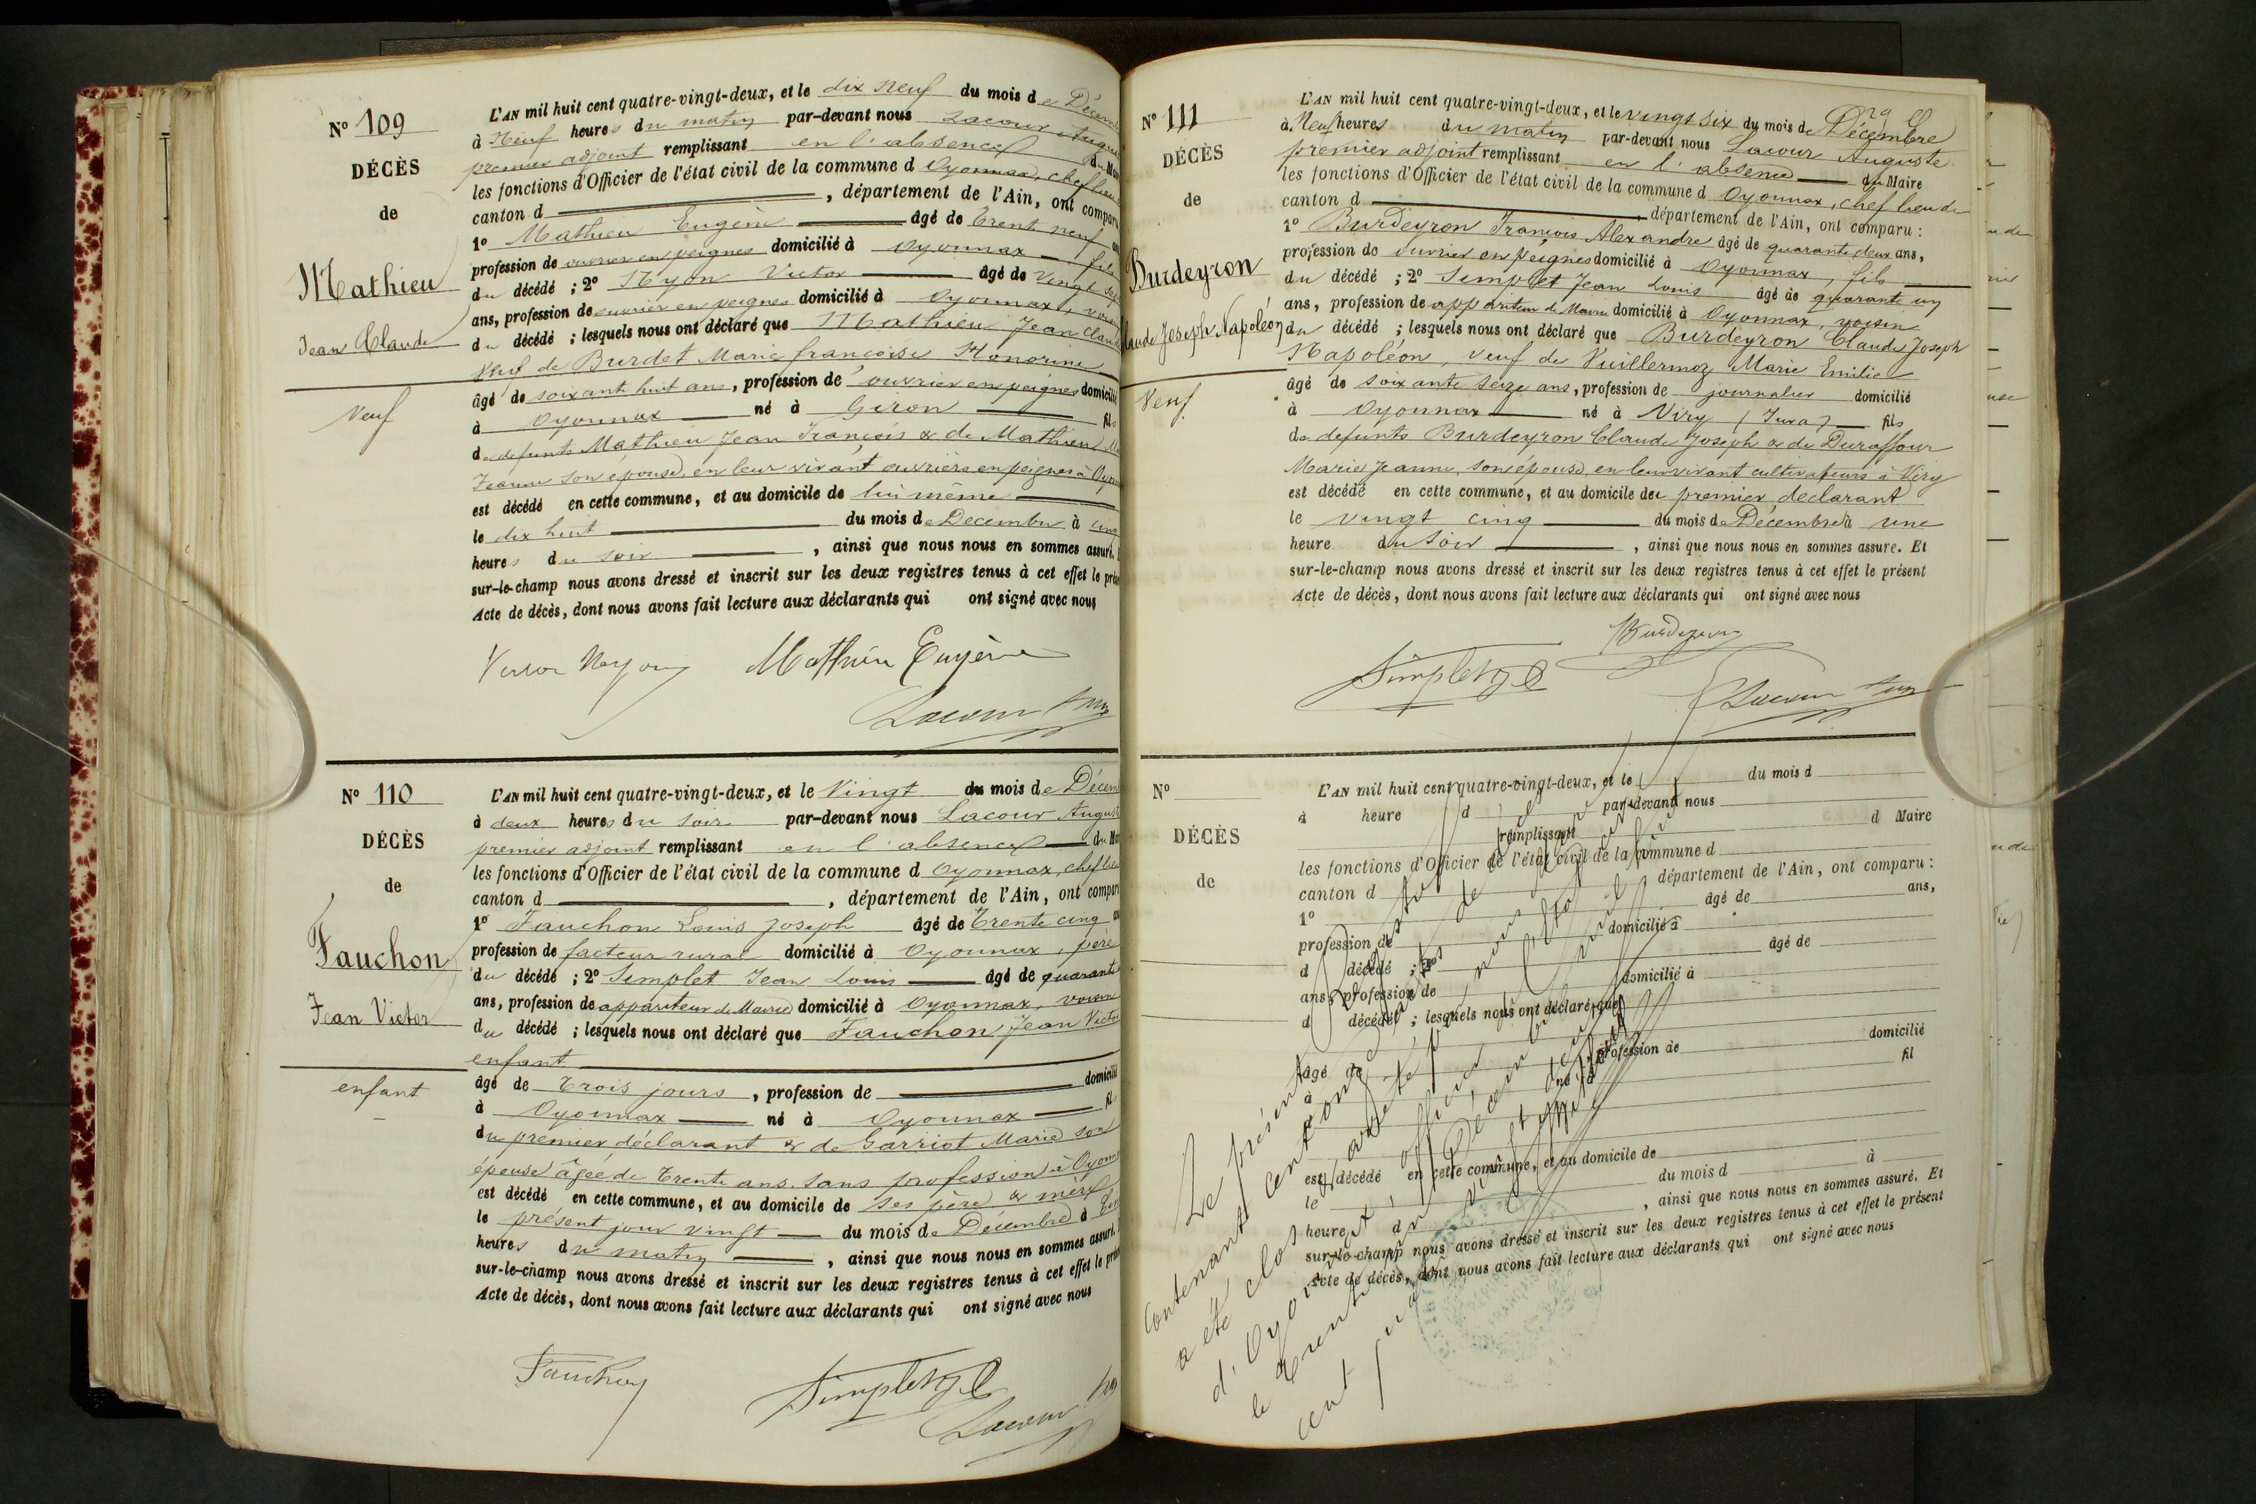 N° 109
DÉCÈS
de
Mathieu
Jean Claude
Veuf
L'AN mil huit cent quatre-vingt-deux, et le dix neuf du mois de
à Neuf heures du matin par-devant nous Lacour
premier adjoint remplissant en l'absence du
les fonctions d'Officier de l'état civil de la commune d Oyonnax, chef lieu
canton d , département de l'Ain, ont
1° Mathieu Eugène âgé de trent neuf
profession de ouvrier en peignes domicilié à Oyonnax fils
du décédé ; 2° Nyon Victor âgé de vingt
ans, profession de ouvrier en peignes domicilié à Oyonnax,
du décédé ; lesquels nous ont déclaré que Mathieu Jean Claude
veuf de Burdet Marie françoise Honorine
âgé de soixant huit ans, profession de ouvrier en peignes domicilié
à Oyonnax né à Giron fils
de defunts Mathieu Jean François & de Mathieu
Jeanne son épouse, en leur vivant ouvriers en peignes à
est décédé en cette commune, et au domicile de lui même
le dix huit du mois de Decembre à cinq
heures du soir , ainsi que nous nous en sommes assuré.
sur-le-champ nous avons dressé et inscrit sur les deux registres tenus à cet effet le
Acte de décès, dont nous avons fait lecture aux déclarants qui ont signé avec nous
Victor Nyon Mathieu Eugène
Lacour
N° 110
DÉCÈS
de
Fauchon
Jean Victor
enfant
L'AN mil huit cent quatre-vingt-deux, et le Vingt du mois de
à deux heures du soir par-devant nous Lacour
premier adjoint remplissant en l'absence du
les fonctions d'Officier de l'état civil de la commune d Oyonnax, chef lieu
canton d , département de l'Ain, ont
1° Fauchon Louis Joseph âgé de trente cinq
profession de facteur rural domicilié à Oyonnax, père
du décédé ; 2° Simplet Jean Louis âgé de quarante
ans, profession de appariteur de Mairie domicilié à Oyonnax, voisin
du décédé ; lesquels nous ont déclaré que Fauchon Jean Victor
enfant
âgé de trois jours , profession de domicilié
à Oyonnax né à Oyonnax
du premier déclarant & de Garriot Marie son
épouse âgée de trente ans sans profession à
est décédé en cette commune, et au domicile de ses père & mère
le présent jour vingt du mois de Décembre à
heures du matin , ainsi que nous nous en sommes assuré.
sur-le-champ nous avons dressé et inscrit sur les deux registres tenus à cet effet le
Acte de décès, dont nous avons fait lecture aux déclarants qui ont signé avec nous
Fauchon
Simplet
Lacour
N° 111
DÉCÈS
de
Burdeyron
Claude Joseph Napoléon
Veuf
L'AN mil huit cent quatre-vingt-deux, et le vingt six du mois de Décembre
à Neuf heures du matin par-devant nous Lacour Auguste
premier adjoint remplissant en l'absence du Maire
les fonctions d'Officier de l'état civil de la commune d Oyonnax, chef lieu de
canton d , département de l'Ain, ont comparu :
1° Burdeyron François Alexandre âgé de quarante deux ans,
profession de ouvrier en peignes domicilié à Oyonnax, fils
du décédé ; 2° Simplet Jean Louis âgé de quarante un
ans, profession de appariteur de Mairie domicilié à Oyonnax, voisin
du décédé ; lesquels nous ont déclaré que Burdeyron Claude Joseph
Napoléon, veuf de Vuillermoz Marie Emilie
âgé de soixante seize ans, profession de journalier domicilié
à Oyonnax né à Viry (Jura) fils
de defunts Burdeyron Claude Joseph & de Duraffour
Marie Jeanne, son épouse, en leur vivant cultivateurs à Viry
est décédé en cette commune, et au domicile du premier déclarant
le vingt cinq du mois de Décembre à une
heure du soir , ainsi que nous nous en sommes assuré. Et
sur-le-champ nous avons dressé et inscrit sur les deux registres tenus à cet effet le présent
Acte de décès, dont nous avons fait lecture aux déclarants qui ont signé avec nous
Burdeyron
Simplet
Lacour
N°
DÉCÈS
de
L'AN mil huit cent quatre-vingt-deux, et le du mois d
à heure d par-devant nous
remplissant d Maire
les fonctions d'Officier de l'état civil de la commune d
canton d département de l'Ain, ont comparu :
1° âgé de ans,
profession de domicilié à
d décédé ; 2° âgé de
ans, profession de domicilié à
d décédé ; lesquels nous ont déclaré que
âgé de profession de domicilié
à né à fil
est décédé en cette commune, et au domicile de
le du mois d à
heure d , ainsi que nous nous en sommes assuré. Et
sur-le-champ nous avons dressé et inscrit sur les deux registres tenus à cet effet le présent
Acte de décès, dont nous avons fait lecture aux déclarants qui ont signé avec nous
Le présent
Contenant cent onze
a été clos et arrêté par nous
d'Oyonnax, officier de l'état civil
le trente un Décembre mil huit
cent quatre vingt deux